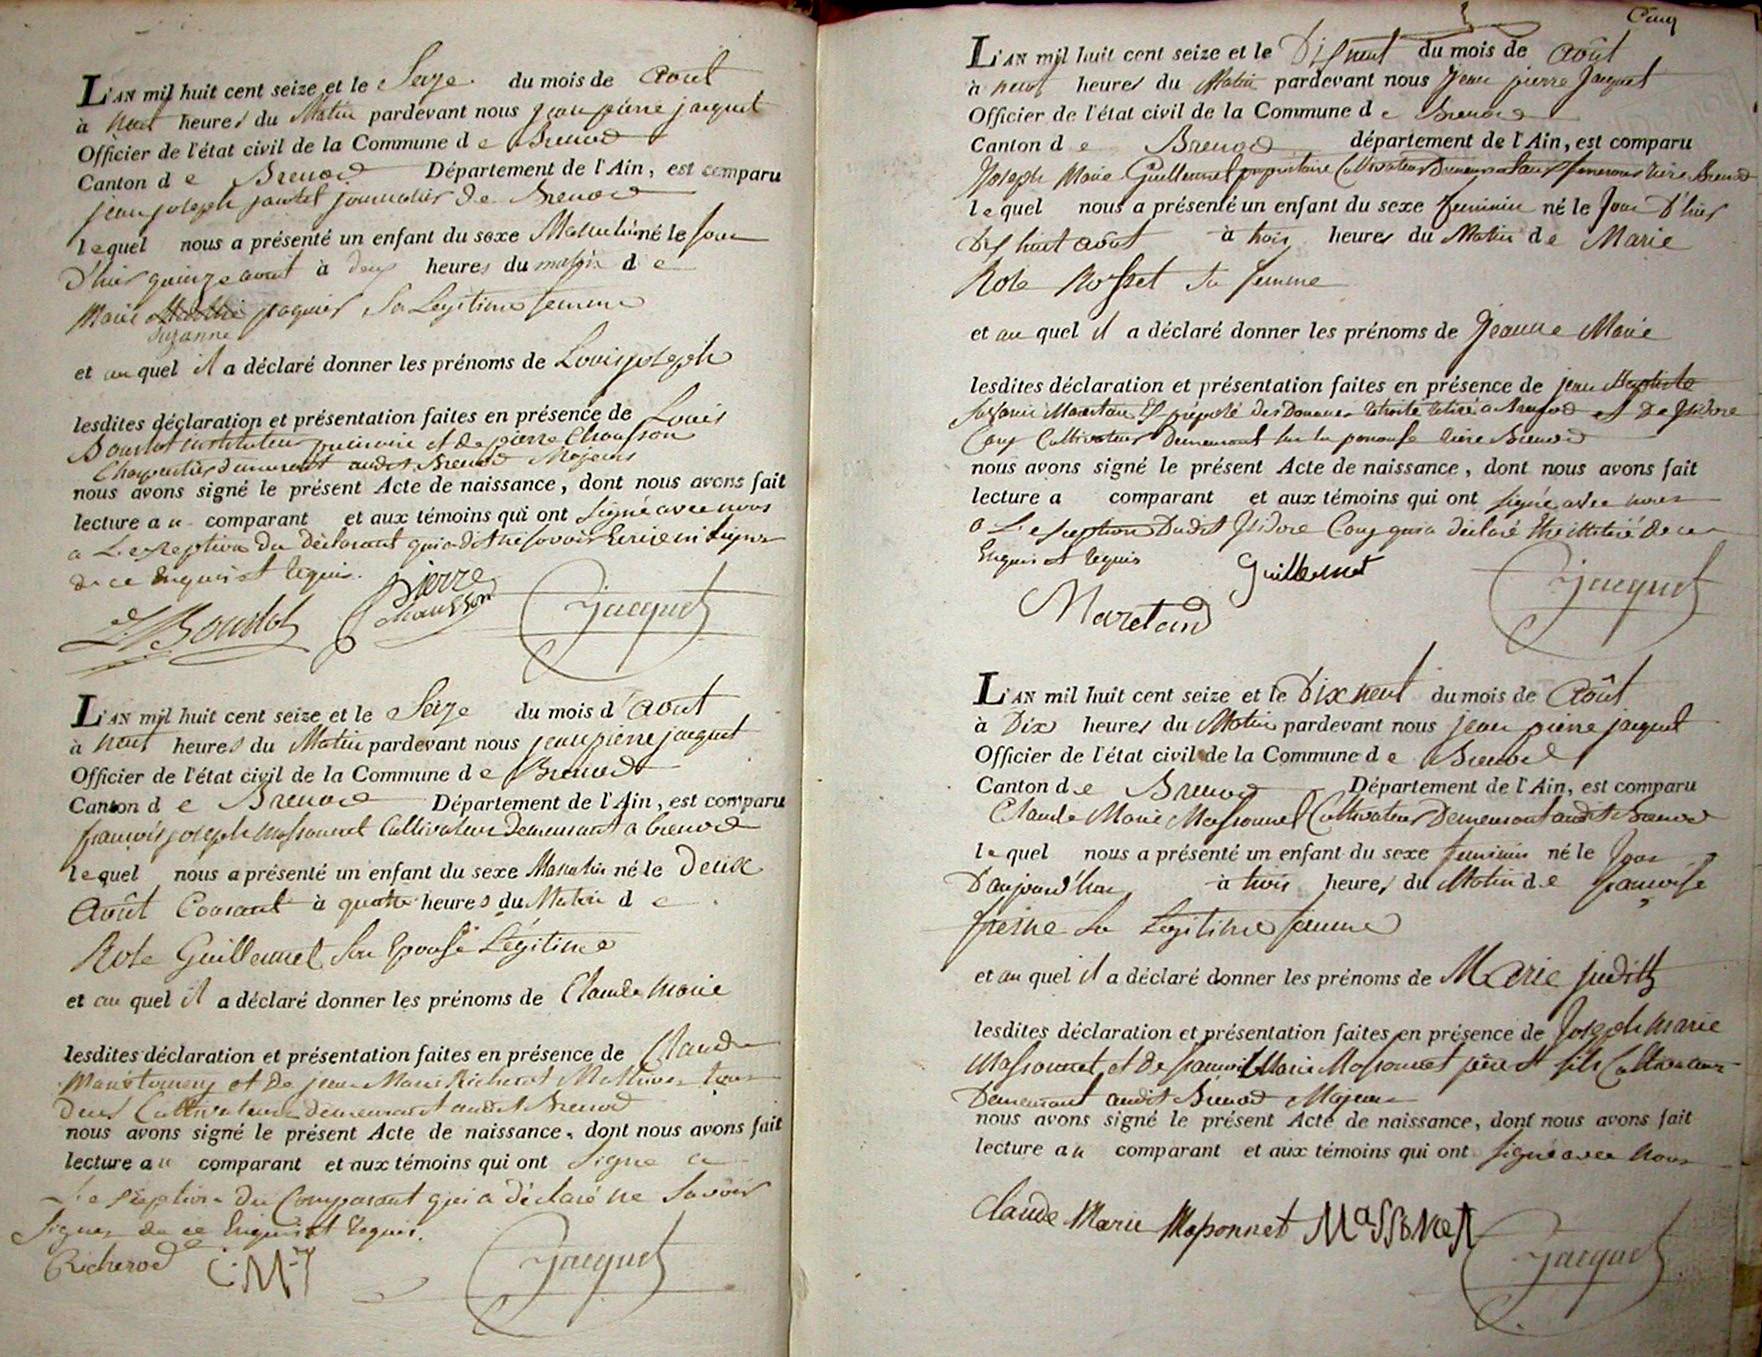 L'AN mil huit cent seize et le Seize du mois de Aout
à neuf heures du Matin pardevant nous jean pierre jacquet
Officier de l'état civil de la Commune de Brenod
Canton de Brenod Département de l'Ain, est comparu
jean joseph journalier de Brenod
lequel nous a présenté un enfant du sexe Masculin né le jour
d'hier quinze aout à deux heures du matin de
Marie Suzanne paquier sa Legitime femme
et au quel il a déclaré donner les prénoms de Louis joseph
lesdites déclaration et présentation faites en présence de Louis
Bourdot instituteur primaire et de pierre Chausson
Charpentier demeurant audit Brenod Majeurs
nous avons signé le présent Acte de naissance, dont nous avons fait
lecture au comparant et aux témoins qui ont signé avec nous
a L'exseption du déclarant qui a dit ne savoir Ecrire ni signer
de ce Enquis et requis.
Pierre
Chausson
Jacquet
L'AN mil huit cent seize et le Seize du mois d'Aout
à neuf heures du Matin pardevant nous jean pierre jacquet
Officier de l'état civil de la Commune de Brenod
Canton de Brenod Département de l'Ain, est comparu
françois joseph Massonnet Cultivateur demeurant a brenod
lequel nous a présenté un enfant du sexe Masculin né le Deux
Août Courant à quatre heures du Matin de
Rose Guillermet son Epouse Légitime
et au quel il a déclaré donner les prénoms de Claude Marie
lesdites déclaration et présentation faites en présence de Claude
Marie et de jean Marie Richerot tous
deux Cultivateurs demeurant audit Brenod
nous avons signé le présent Acte de naissance, dont nous avons fait
lecture au comparant et aux témoins qui ont signé a
L'exseption du Comparant qui a déclaré ne Savoir
signer de ce Enquis et requis.
Richerod C·M·T
Jacquet
Cinq
L'AN mil huit cent seize et le Dix neuf du mois de Août
à neuf heures du Matin pardevant nous Jean pierre Jacquet
Officier de l'état civil de la Commune de Brenod
Canton de Brenod département de l'Ain, est comparu
Joseph Marie Guillermet propriétaire Cultivateur Demeurant rière Brenod
lequel nous a présenté un enfant du sexe feminin né le Jour D'hier
Dix huit août à trois heures du Matin de Marie
Rose Rosset sa femme
et au quel il a déclaré donner les prénoms de Jeanne Marie
lesdites déclaration et présentation faites en présence de jean Baptiste
Maretan préposé des Douanes retraité retiré a Brenod et de Isidore
Cultivateur Demeurant sur la rière Brenod
nous avons signé le présent Acte de naissance, dont nous avons fait
lecture a comparant et aux témoins qui ont signé avec nous
a L'exseption Dudit Isidore qui a déclaré être illitéré de ce
Enquis et requis
Guillermet
Jacquet
Maretand
L'AN mil huit cent seize et le Dix neuf du mois de Août
à Dix heures du Matin pardevant nous jean pierre jacquet
Officier de l'état civil de la Commune de Brenod
Canton de Brenod Département de l'Ain, est comparu
Claude Marie Massonnet Cultivateur Demeurant audit Brenod
lequel nous a présenté un enfant du sexe feminin né le Jour
D'aujourd'hui à trois heures du Matin de françoise
sa Légitime femme
et au quel il a déclaré donner les prénoms de Marie judith
lesdites déclaration et présentation faites en présence de Joseph Marie
Massonnet et de françois Marie Massonnet père et fils Cultivateurs
Demeurant audit Brenod Majeurs
nous avons signé le présent Acte de naissance, dont nous avons fait
lecture au comparant et aux témoins qui ont signé avec nous
Claude Marie Massonnet Massonet
Jacquet